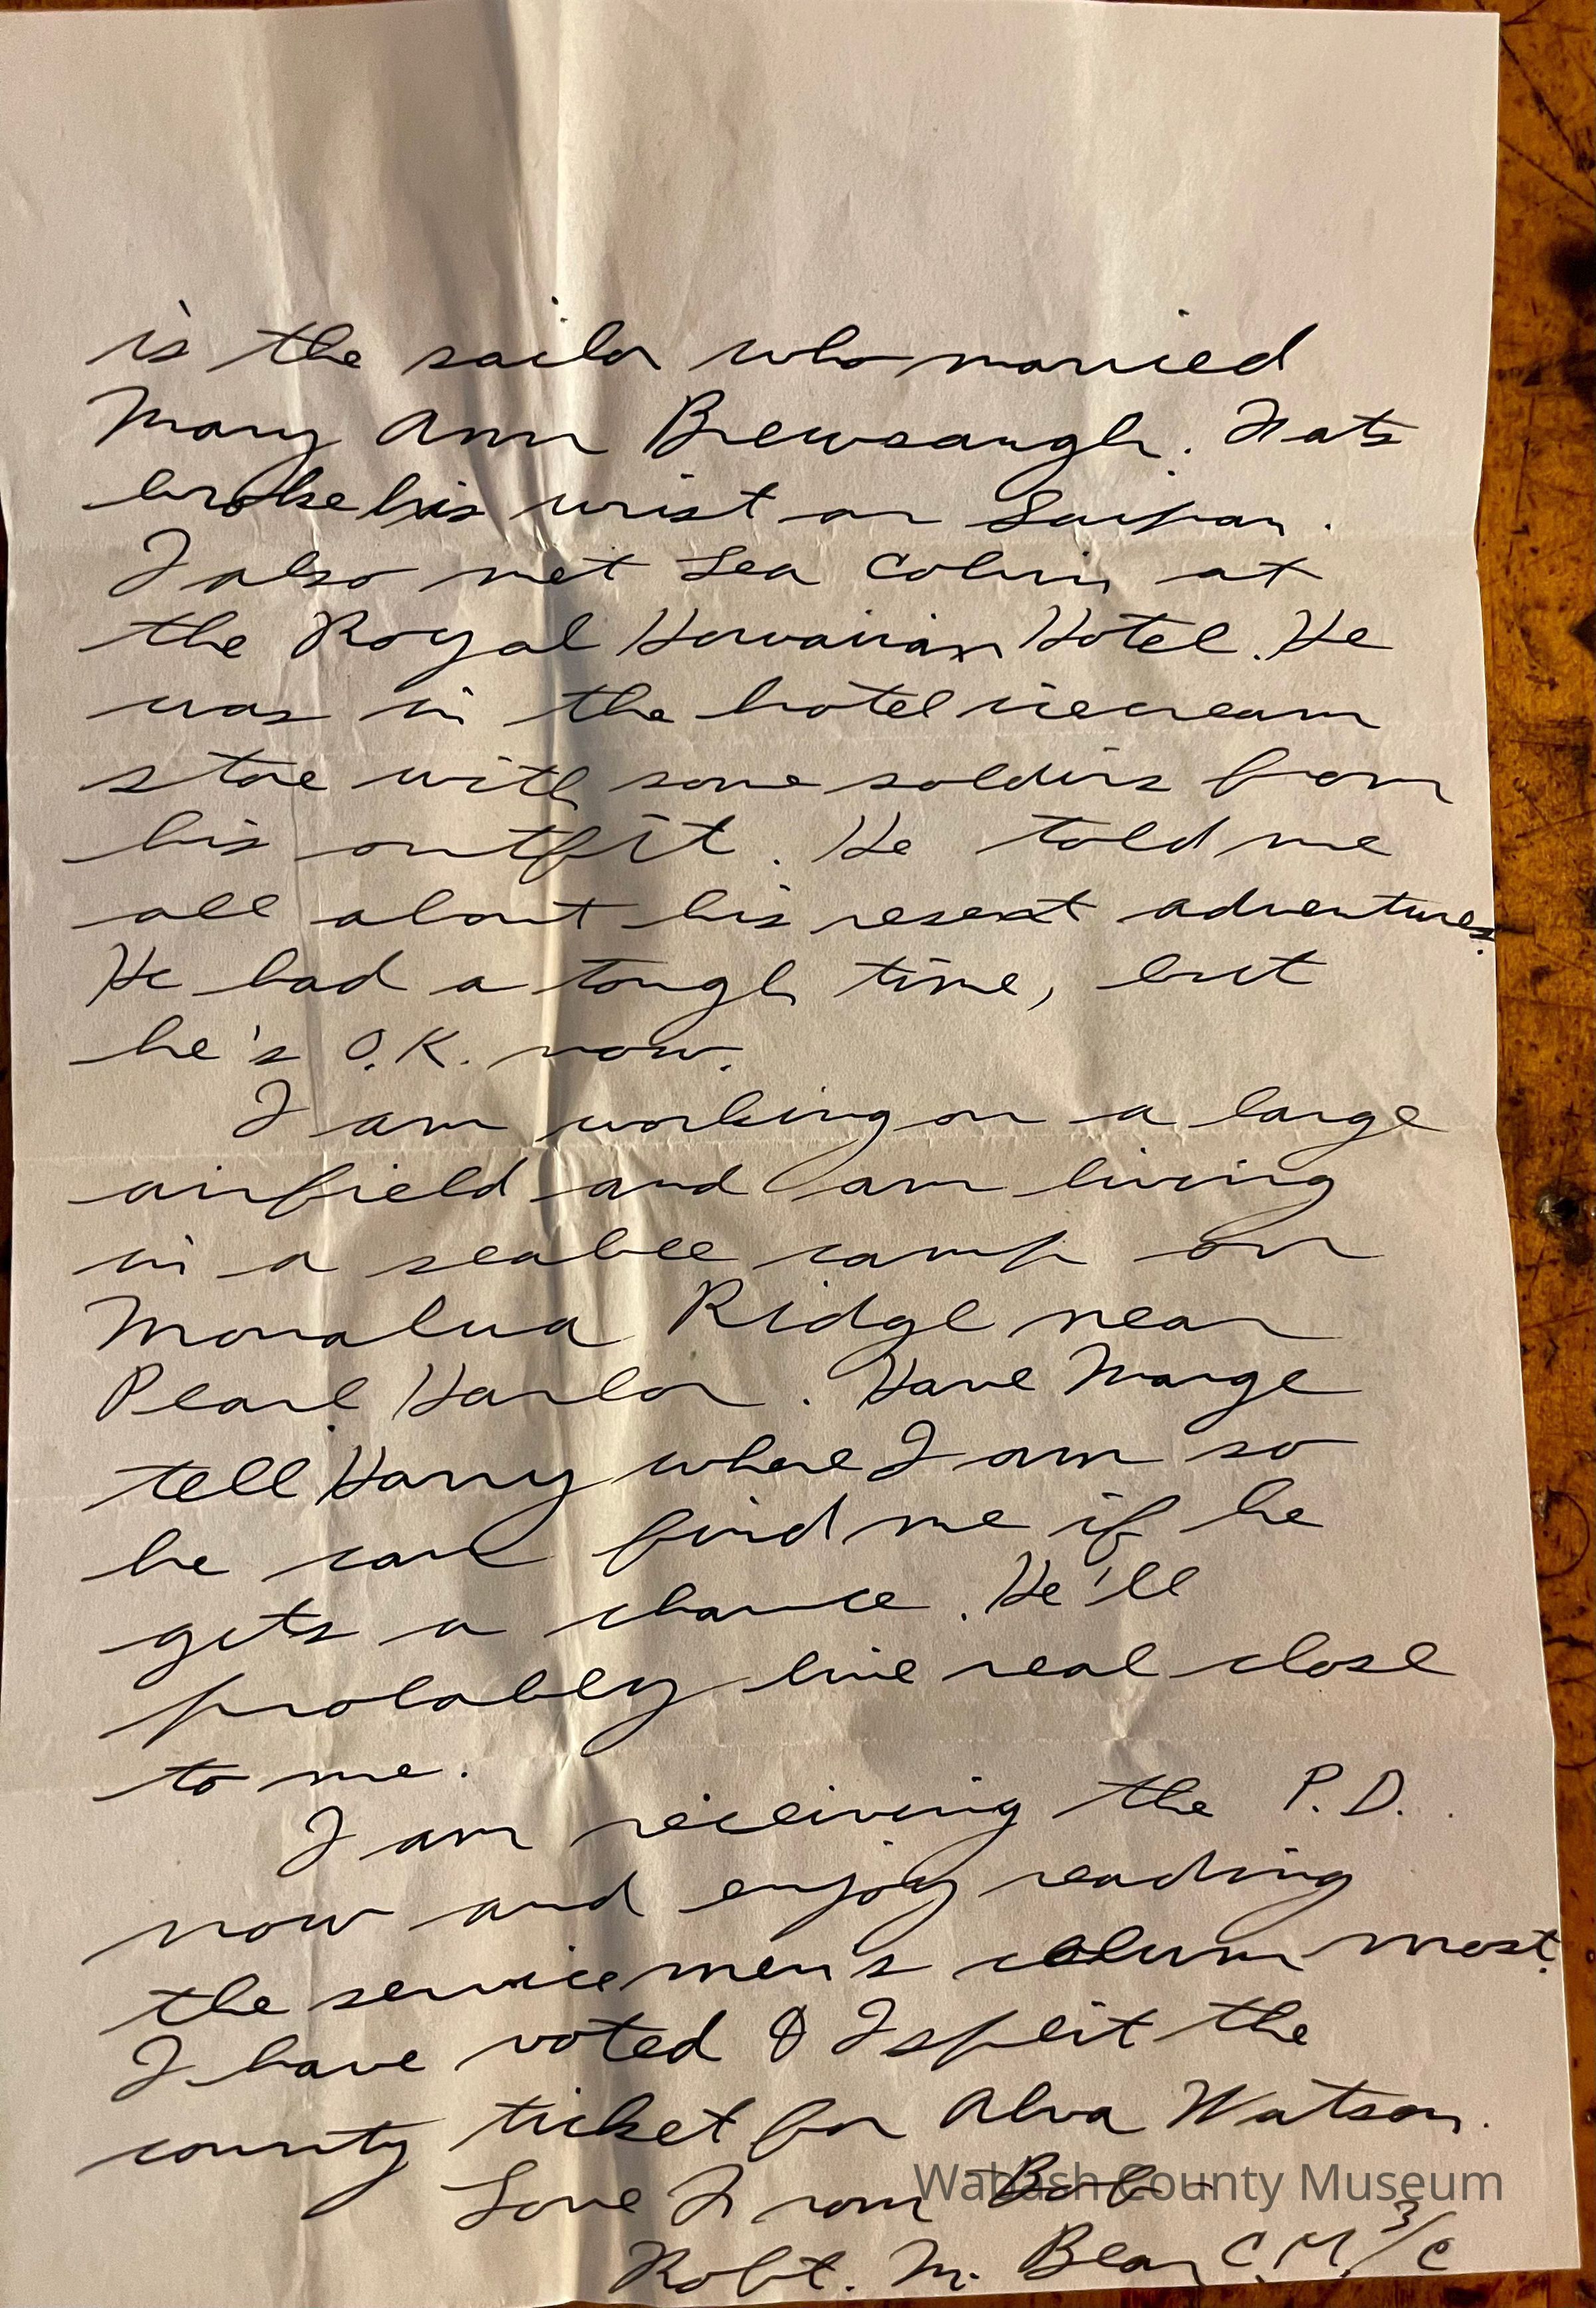 is the sailor who married
Mary Ann Brewbaugh. Nats
broke his wrist on Saipan.
I also met Lea Colvin at
the Royal Hawaiian Hotel. He
was in the hotel icecream
store with some soldiers from
his outfit. He told me
all about his resent adventures.
He had a tough time, but
he's O.K. now.
I am working on a large
airfield and am living
in a seabee camp on
Monalua Ridge near
Pearl Harbor. Have Marge
tell Harry where I am so
he can find me if he
gets a chance. He'll
probably live real close
to me.
I am receiving the P.D.
now and enjoy reading
the servicemen's colum most.
I have voted & I split the
county ticket for Alva Watson.
Love From Bob
Robt. M. Bear C.M. 3/C
Wabash County Museum